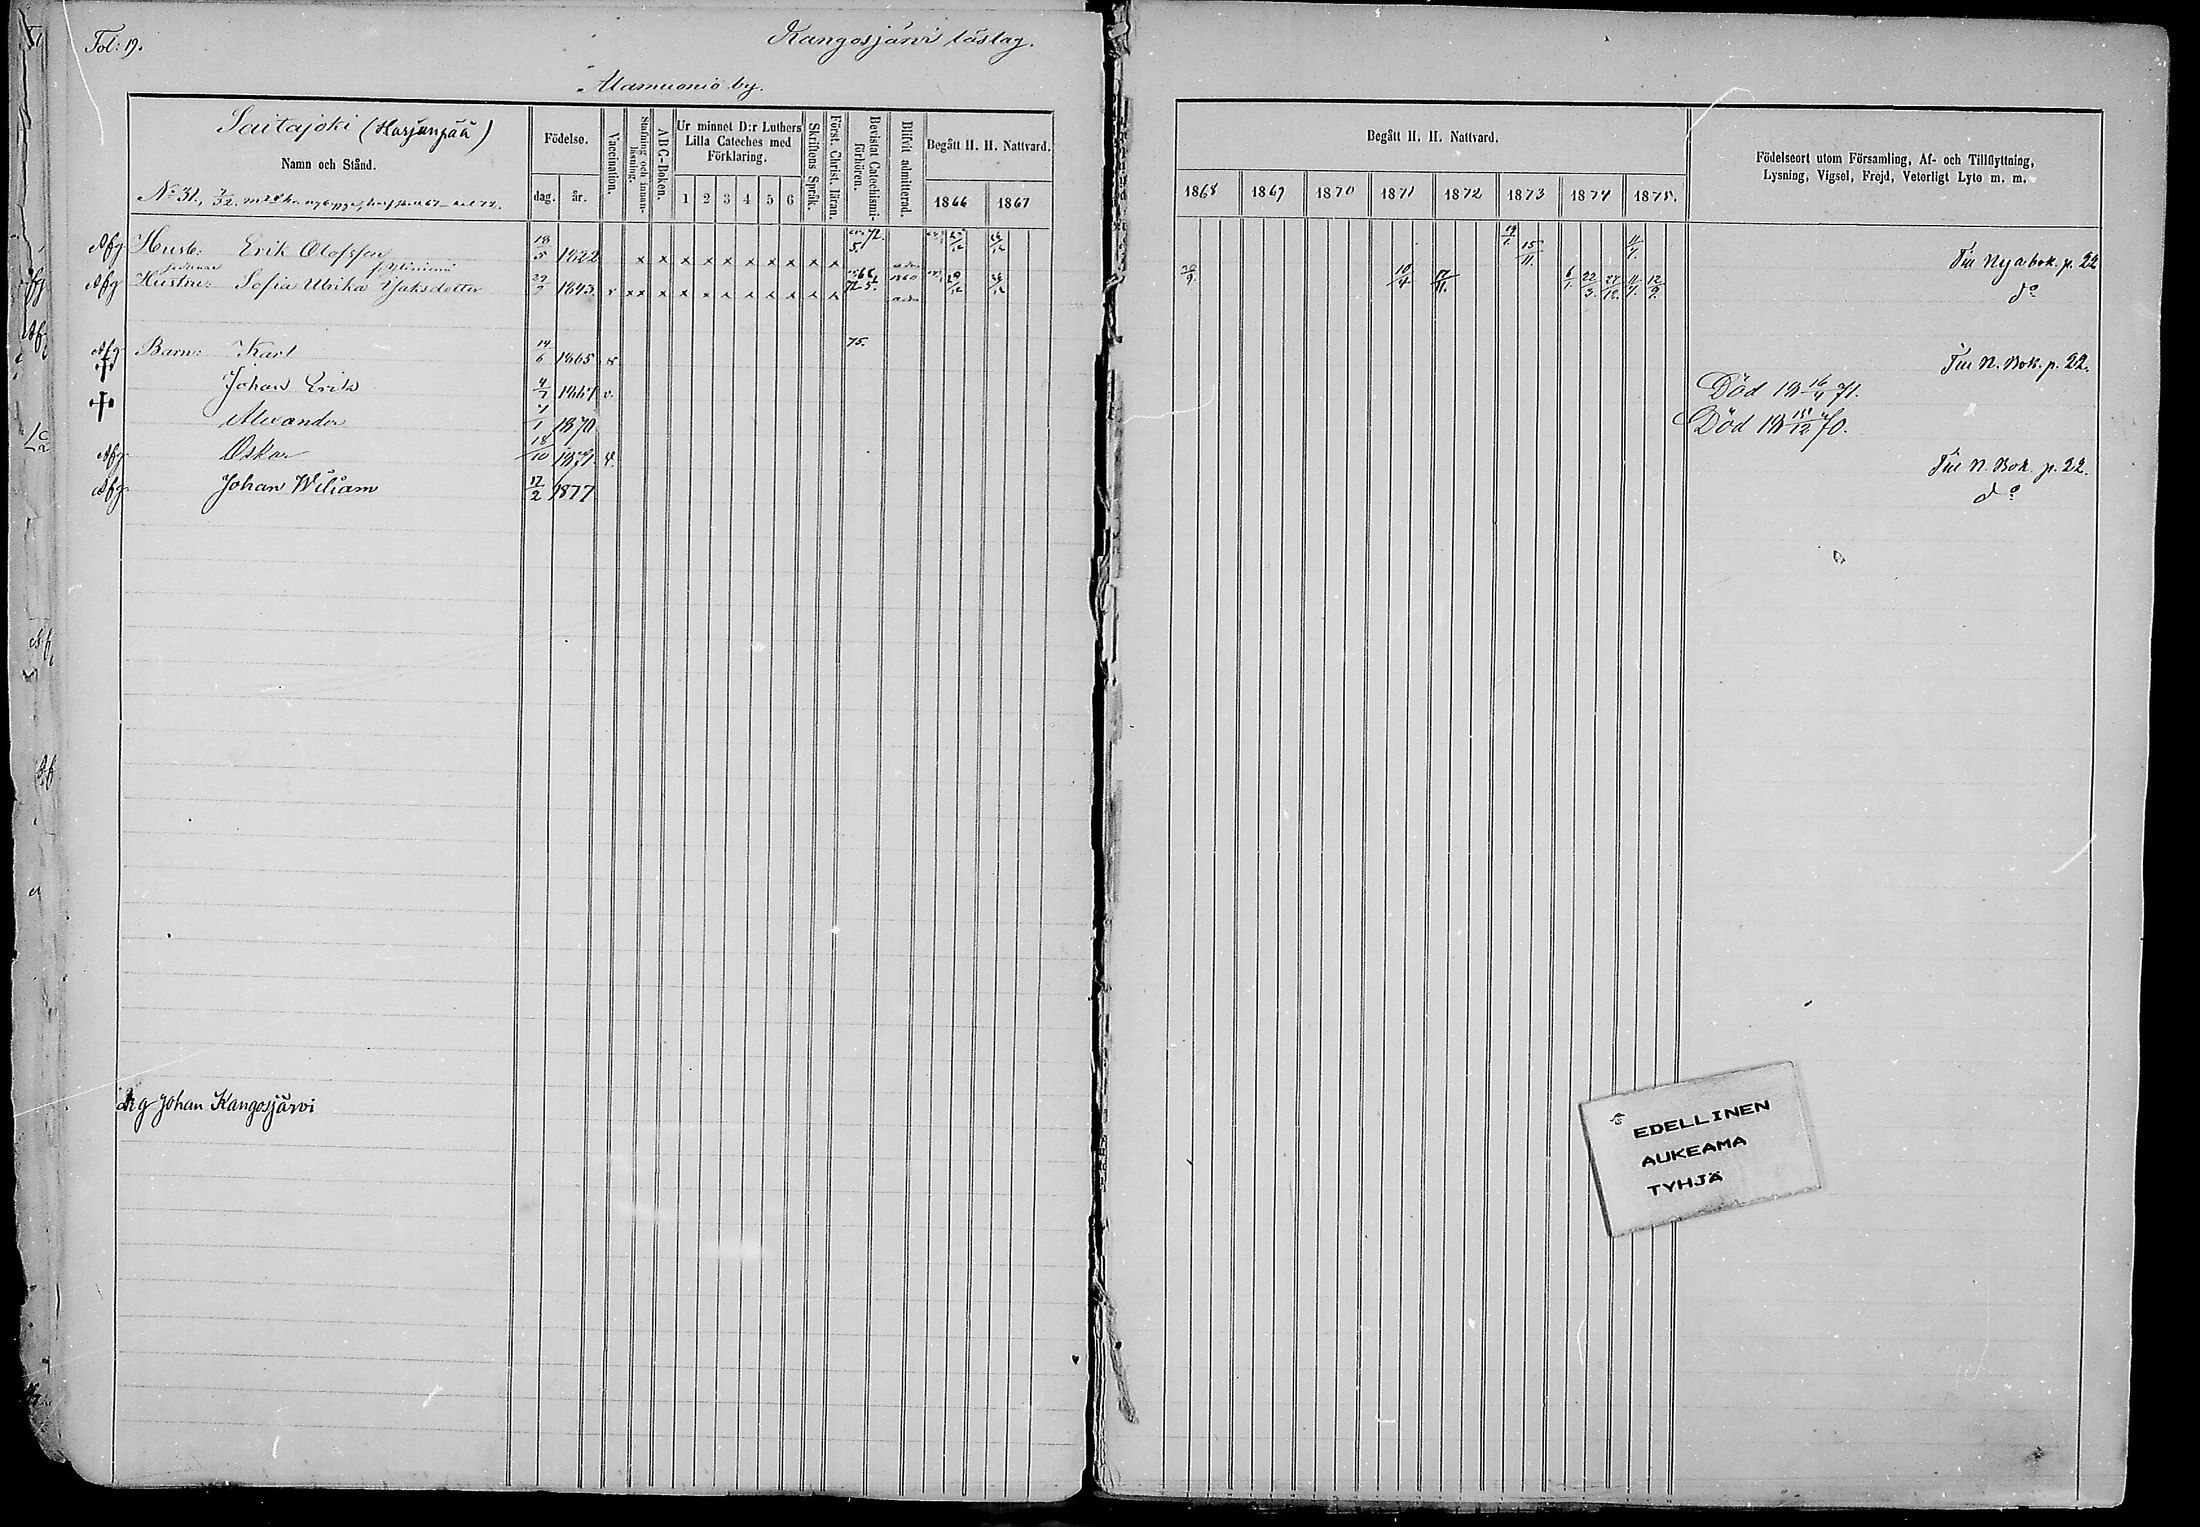 Fol: 19.
Kangosjärvi läslag.
Alamuonio by.
Saitajoki (Harjunpää)
Namn och Stånd.
No 31.,
Födelse.
dag. år.
Vaccination.
Stafning och innan-läsning.
ABC-Boken.
Ur minnet D:r Luthers Lilla Cateches med Förklaring.
1 2 3 4 5 6
Skriftens Språk.
Först. Christ. läran.
Bevistat Catechismi-förhören.
Blifvit admitterad.
Begått H. H. Nattvard.
1866 1867
Begått H. H. Nattvard.
1868 1869 1870 1871 1872 1873 1874 1875.
Födelseort utom Församling, Af- och Tillflyttning,
Lysning, Vigsel, Frejd, Veterligt Lyte m. m.
Afg Husb: Erik Olofsson 18/5 1822 x x x x x x x x x x 72. 19/1 15/11. 11/7. Till Nya bok. p. 22
Afg Hustru: Sofia Ulrika Isaksdotter 1843. v x x x x x x x x x x x 1860 20/9. 10/4 17/11. 6/1. 22/3. 27/12. 11/7. 12/9. do
Afg Barn: Karl 14/6 1865 v 75. Till N. Bok. p. 22.
† Johan Erik 4/7 1867 v. Död 18 16/4 71.
† Alexander 7/1 1870. Död 18 18/12 70.
Afg Oskar 18/10 1871. v. Till N. Bok. p. 22.
Afg Johan Wiliam 17/2 1877 do
Johan Kangosjärvi
EDELLINEN
AUKEAMA
TYHJÄ